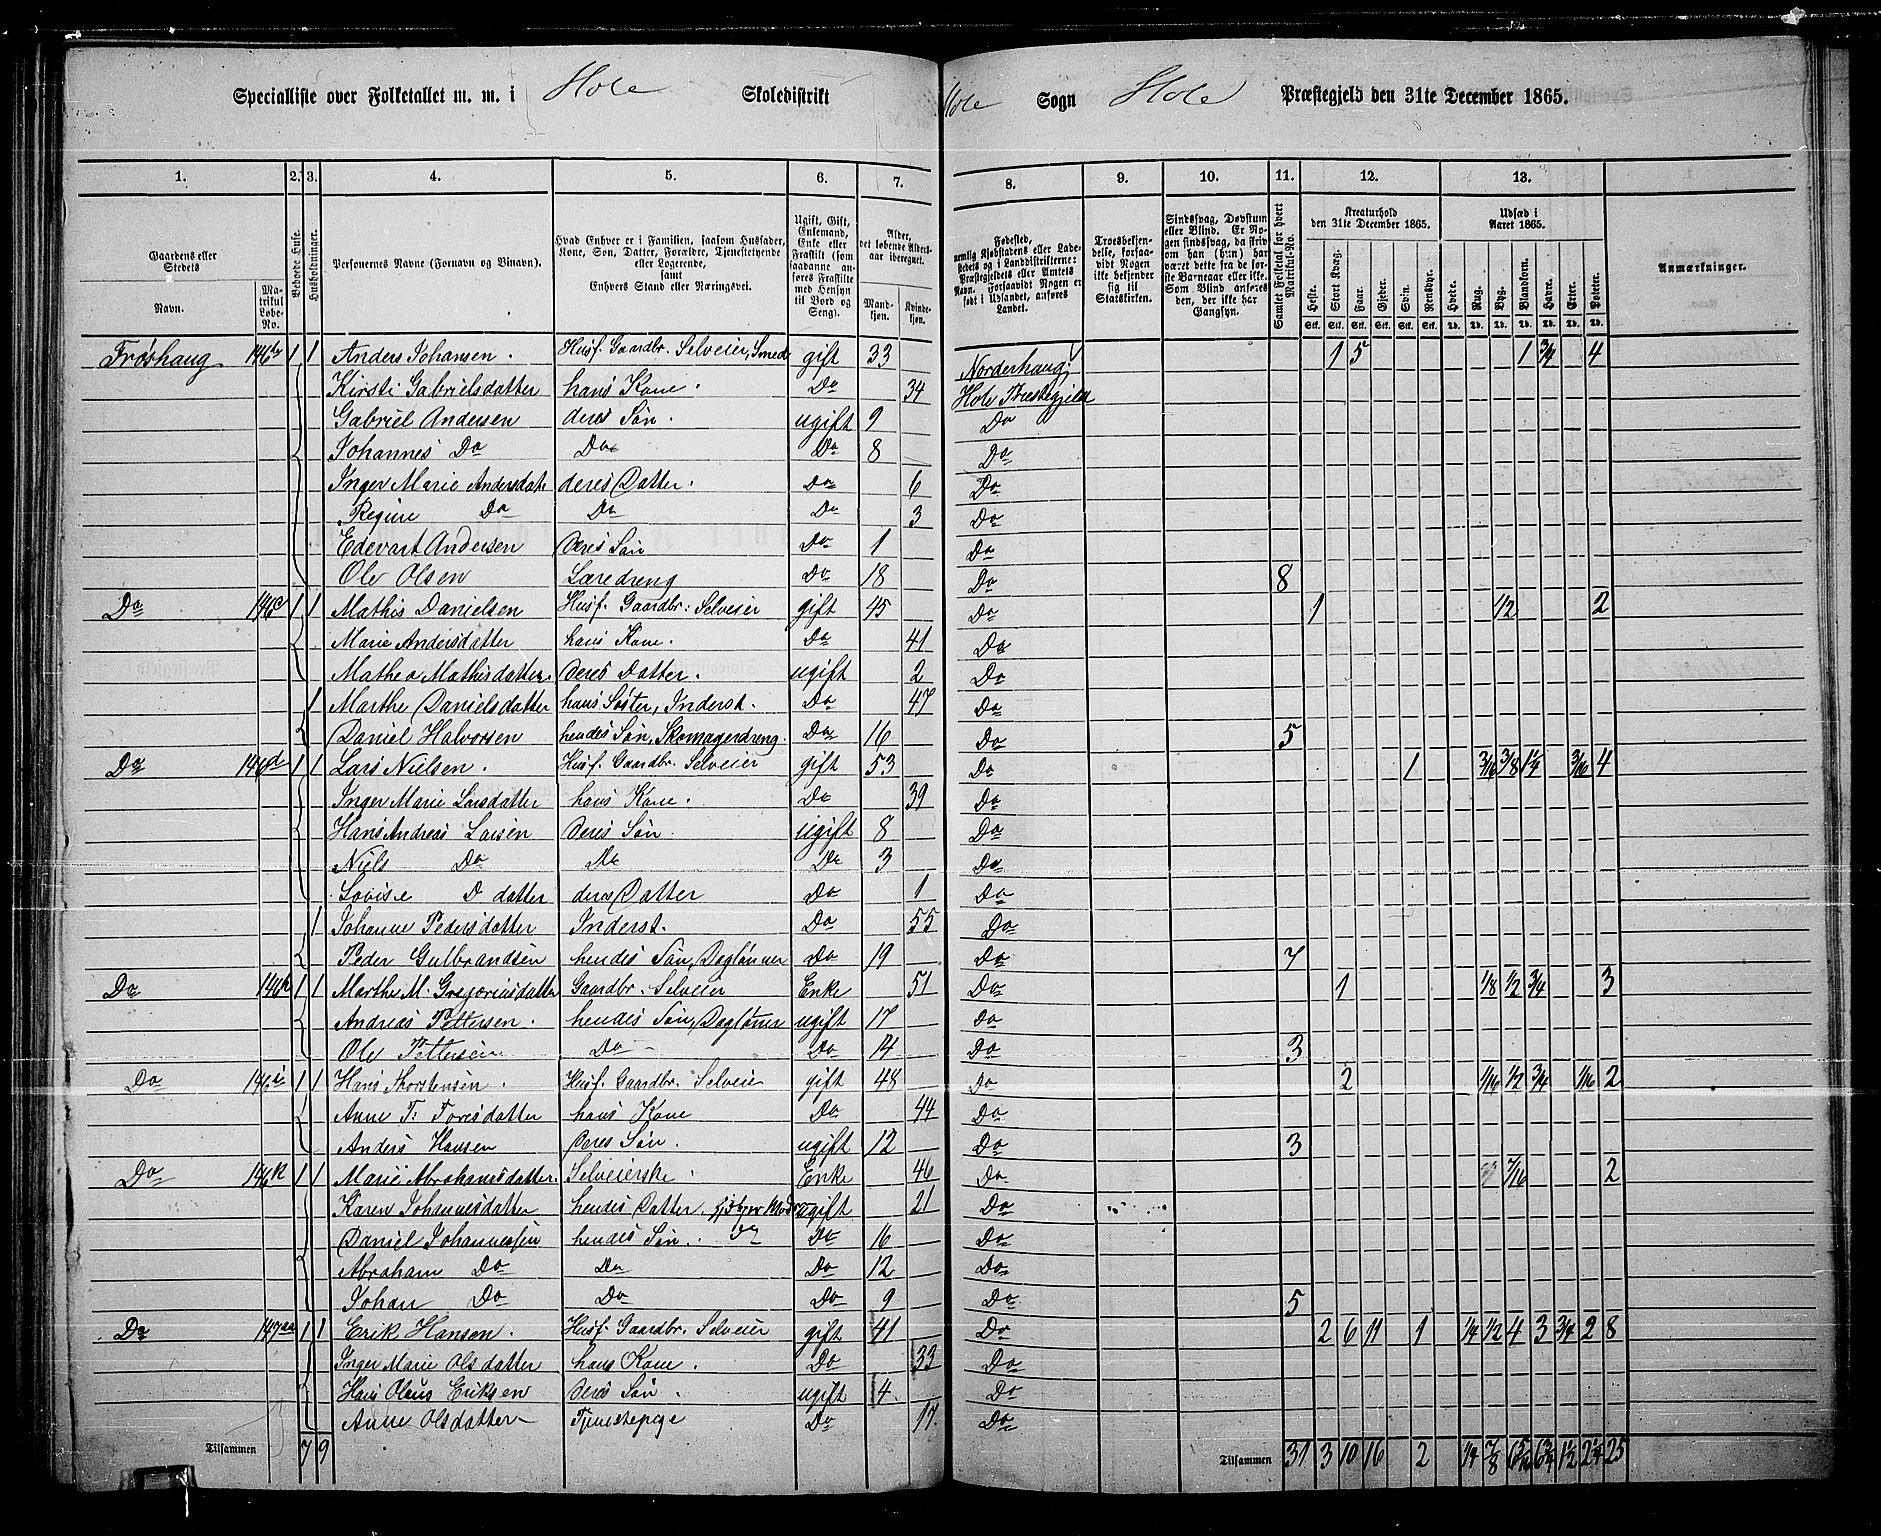 Specialliste over Folketallet m. m. i Hole Skoledistrikt Hole Sogn Hole Præstegjeld den 31te December 1865.
1. 2. 3. 4. 5. 6. 7. 8. 9. 10. 11. 12. 13.
Gaardens eller Stedets Navn. Matrikul Løbe-No. Beboede Huse. Husholdninger. Personernes Navne (Fornavn og Binavn). Hvad Enhver er i Familien, saasom Husfader, Kone, Søn, Datter, Forældre, Tjenestetyende eller Logerende, samt Enhvers Stand eller Næringsvei. Ugift, Gift, Enkemand, Enke eller Fraskilt (som saadanne anføres Fraskilte med Hensyn til Bord og Seng). Alder, det løbende Aldersaar iberegnet. Mandkjøn. Kvindekjøn. Fødested, nemlig Kjøbstadens eller Ladestedets og i Landdistrikterne: Præstegjeldets eller Amtets Navn. Forsaavidt Nogen er født i Udlandet, anføres Landet. Troesbekjendelse, forsaavidt Nogen ikke bekjender sig til Statskirken. Sindssvag, Døvstum eller Blind. Er Nogen sindssvag, da skriv om han (hun) har været dette fra de første Barneaar eller ikke. Som Blind anføres den, der ikke har Gangsyn. Samlet Folketal for hvert Matrikul-No. Kreaturhold den 31te December 1865. Heste. Stort Kvæg. Faar. Gjeder. Svin. Rensdyr. Udsæd i Aaret 1865. Hvede. Rug. Byg. Blandkorn. Havre. Erter. Poteter. Anmærkninger.
Stk. Stk. Stk. Stk. Stk. Stk. Td. Td. Td. Td. Td. Td. Td.
Frøshaug 146b 1 1 Anders Johansen. Husf. Gaardbr. Selveier, Smed gift 33 Norderhaug 1 5 1 3/4 4
Kirsti Gabrielsdatter hans Kone. Do 34 Hole Præstegjeld
Gabriel Andersen deres Søn. ugift 9 Do
Johannes Do Do Do 8 Do
Inger Marie Andersdat. deres Datter. Do 6 Do
Regine Do Do Do 3 Do
Edevart Andersen Deres Søn Do 1 Do
Ole Olsen Læredreng Do 18 Do 8
Do 146c 1 1 Mathis Danielsen Husf. Gaardbr. Selveier gift 45 Do 1 1/2 2
Marie Andersdatter hans Kone. Do 41 Do
Mathea Mathisdatter. Deres Datter. ugift 2 Do
1 Marthe Danielsdatter hans Søster, Inderst. Do 47 Do
Daniel Halvorsen hendes Søn, Skomagerdreng. Do 16 Do 5
Do 146d 1 1 Lars Nielsen. Husf. Gaardbr. Selveier gift 53 Do 1 3/16 3/8 1 1/4 3/16 4
Inger Marie Larsdatter hans Kone. Do 39 Do
Hans Andreas Larsen Deres Søn. ugift 8 Do
Niels Do Do Do 3 Do
Lovise D datter deres Datter Do 1 Do
1 Johanne Pedersdatter Inderst. Do 55 Do
Peder Gulbrandsen hendes Søn, Dagløner Do 19 Do 7
Do 146h 1 1 Marthe M. Gregoriusdatter Gaardbr. Selveier Enke 51 Do 1 1/8 1/2 3/4 3
Andreas Pettersen. hendes Søn, Dagløner ugift 17 Do
Ole Pettersen Do Do 14 Do 3
Do 146i 1 1 Hans Thorstensen. Husf. Gaardbr. Selveier gift 48 Do 2 1/16 1/2 3/4 1/16 2
Anne T. Toresdatter hans Kone Do 44 Do
Anders Hansen Deres Søn. ugift 12 Do 3
Do 146k 1 1 Marie Abrahamsdatter. Selveierske Enke 46 Do 7/16 2
Karen Johannesdatter hendes Datter, ugift 21 Do
Daniel Johannessen hendes Søn. Do Do 16 Do
Abraham Do Do Do 12 Do
Johan Do Do Do 9 Do 5
Do 147aa 1 1 Erik Hansen. Husf. Gaardbr. Selveier gift 41 Do 2 6 11 1 1/4 1/2 4 3 3/4 2 8
Inger Marie Olsdatter hans Kone. Do 33 Do
Hans Olaus Eriksen Deres Søn. ugift 4 Do
Anne Olsdatter Tjenestepige Do 17 Do
Tilsammen 7 9 Tilsammen 31 3 10 16 2 1/4 7/8 25